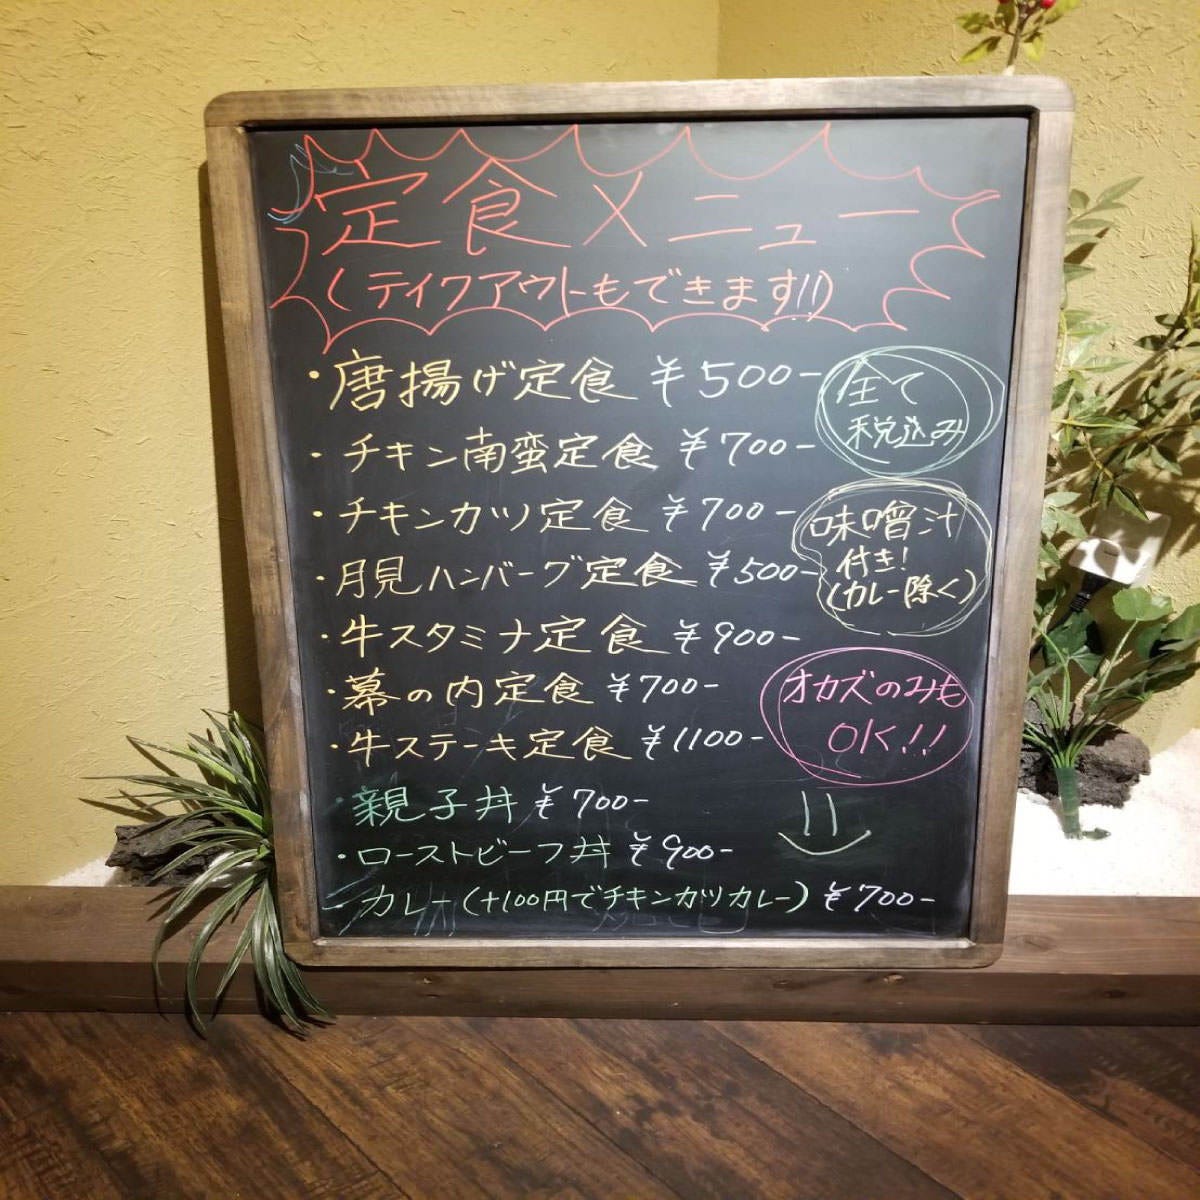 定食メニュー
(テイクアウトもできます!!)
・唐揚げ定食 ¥500-
・チキン南蛮定食 ¥700-
・チキンカツ定食 ¥700-
・月見ハンバーグ定食 ¥500-
・牛スタミナ定食 ¥900-
・幕の内定食 ¥700-
・牛ステーキ定食 ¥1100-
・親子丼 ¥700-
・ローストビーフ丼 ¥900-
・カレー(+100円でチキンカツカレー) ¥700-
全て
税込み
味噌汁
付き!
(カレー除く)
オカズのみも
OK!!